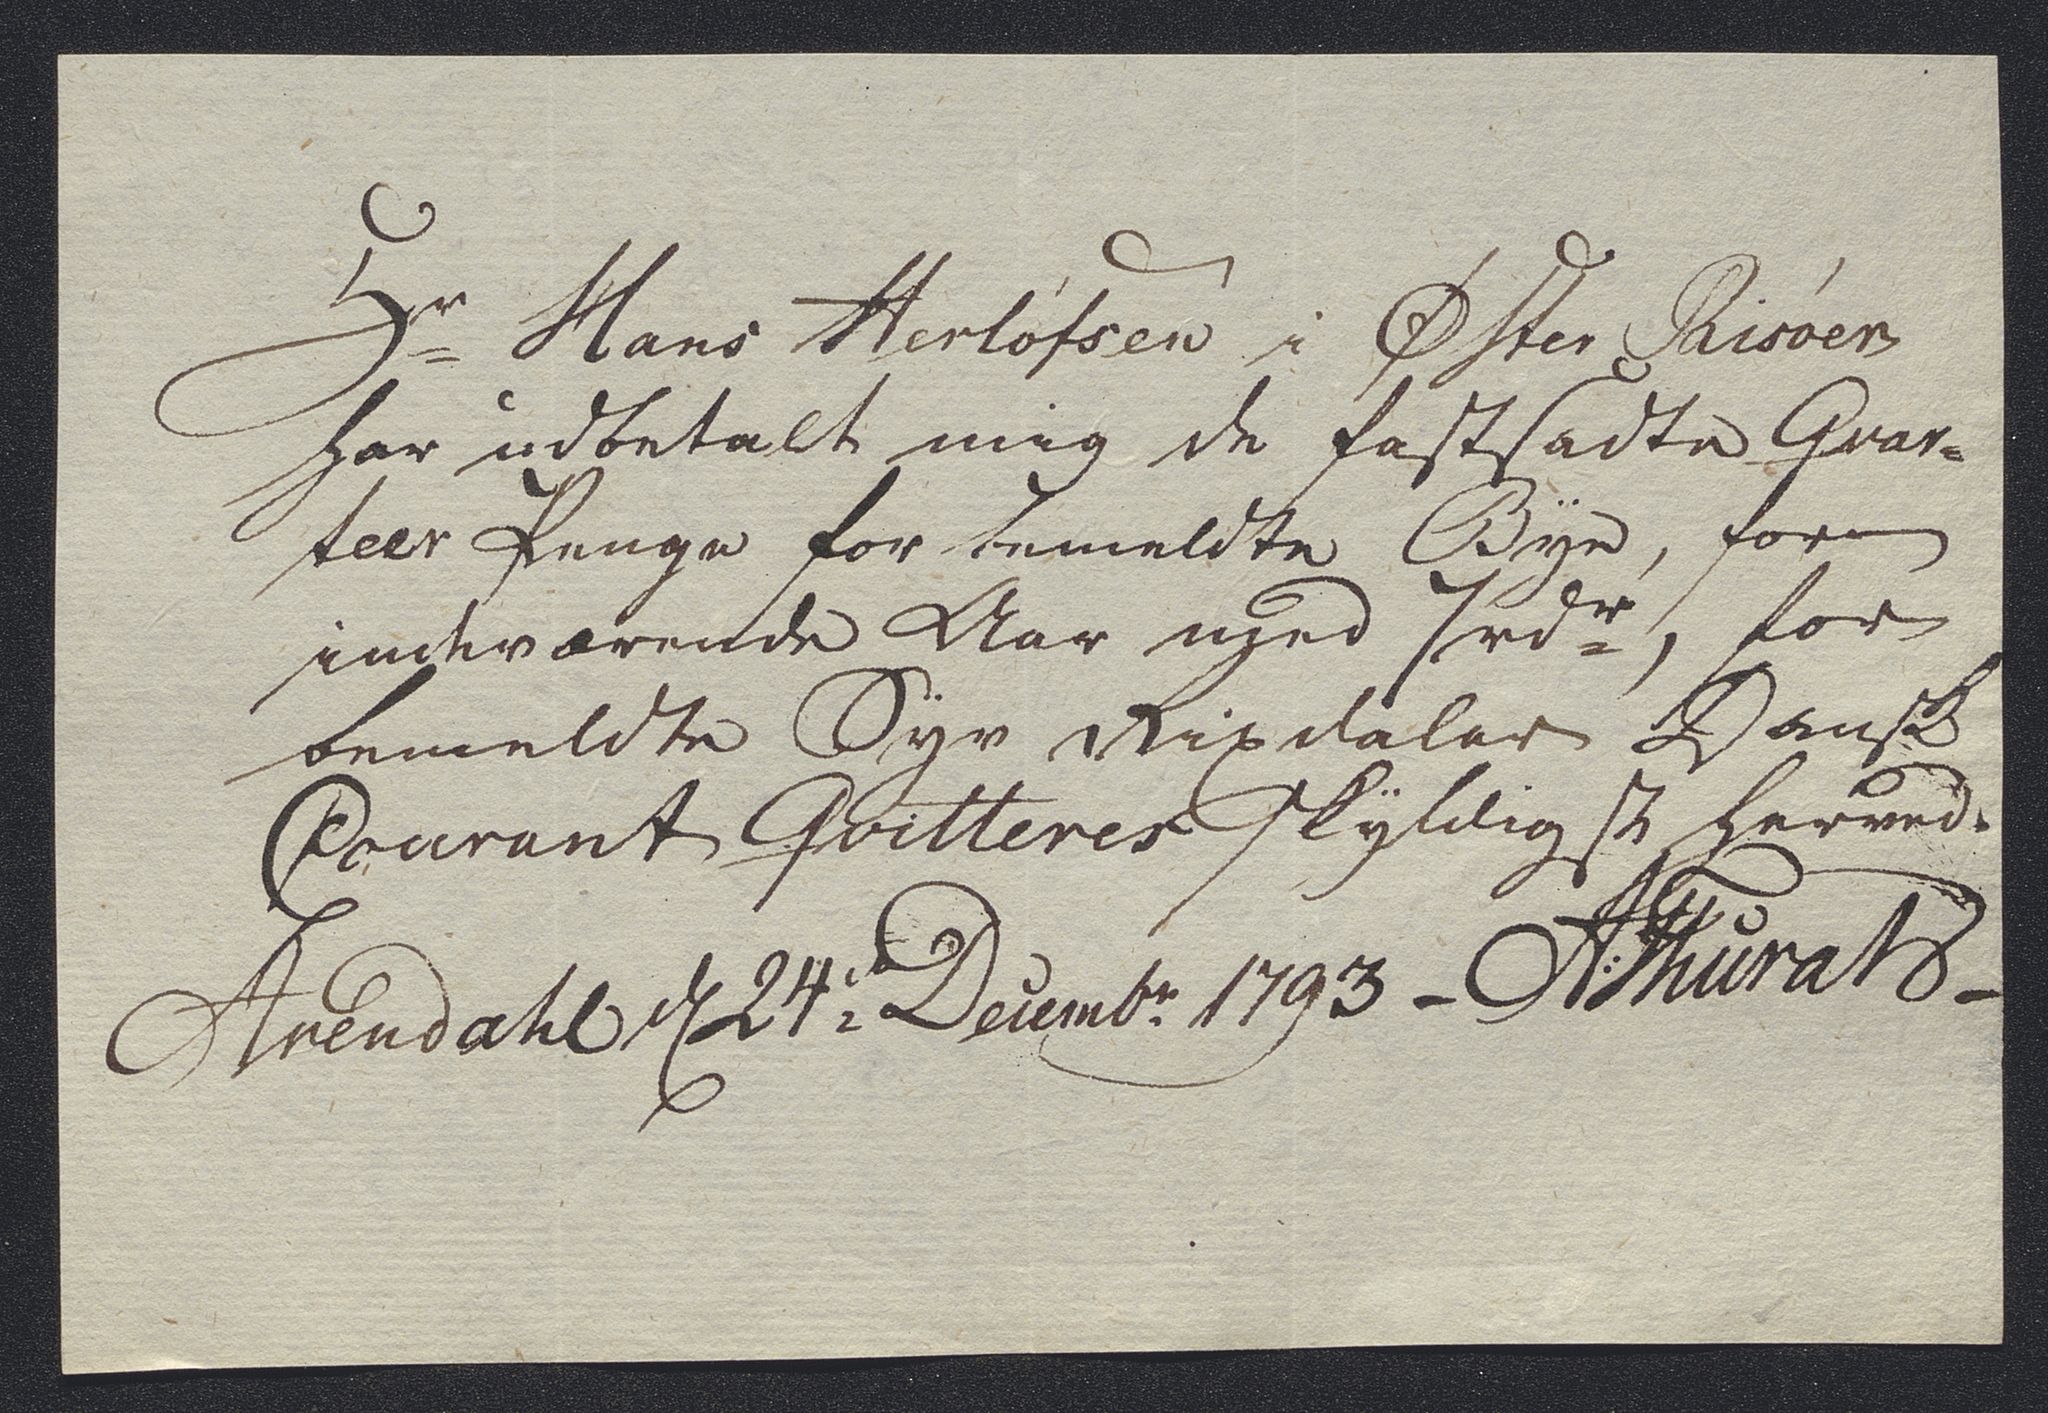 Hr Hans Herlofsen i Øster Risöer
har udbetalt mig de fastsadte Qvar=
teer Penge for bemeldte Bÿe, for
indeværende Aar med 7 rdr, for
bemeldte Syv Rixdaler Dansk
Courant Qvitteres skÿldigst herved.
Arendahl d 24de Decembr 1793 - A: Thurah -